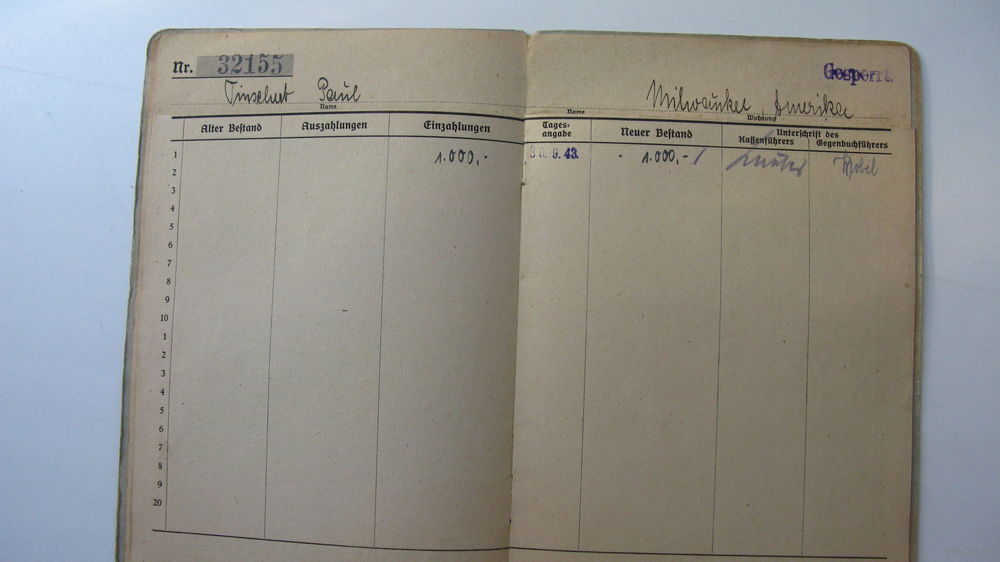 Nr. 32155
Paul
Name
Gesperrt.
Milwaukee, Amerika
Name
Wohnung
Alter Bestand Auszahlungen Einzahlungen
Tages-
angabe
Neuer Bestand
Unterschrift des
Kassenführers Gegenbuchführers
1 1.000,- 30.9.43. - 1.000,-
2
3
4
5
6
7
8
9
10
1
2
3
4
5
6
7
8
9
20